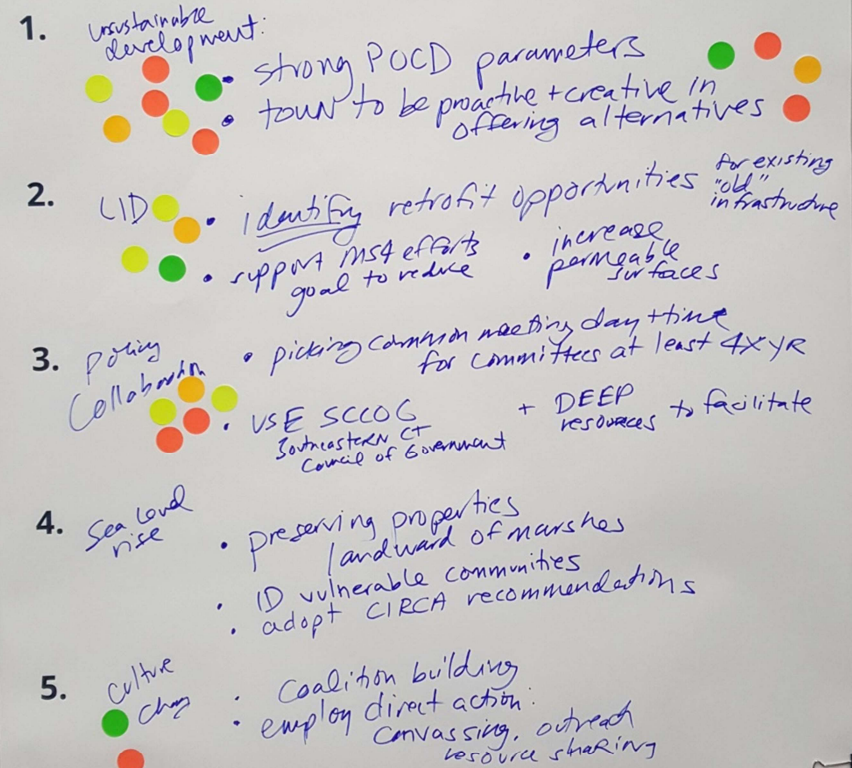 1. unsustainable
development:
• strong POCD parameters
• town to be proactive + creative in
offering alternatives
2. LID
• identify retrofit opportunities for existing
"old"
infrastructure
• support MS4 efforts
goal to reduce
• increase
permeable
surfaces
3. Policy
Collaboration
• picking common meeting day + time
for committees at least 4X YR
• USE SCCOG
Southeastern CT
Council of Government
+ DEEP
resources to facilitate
4. Sea Level
rise
• preserving properties
landward of marshes
• ID vulnerable communities
• adopt CIRCA recommendations
5. Culture
• Coalition building
• employ direct action:
canvassing, outreach
resource sharing